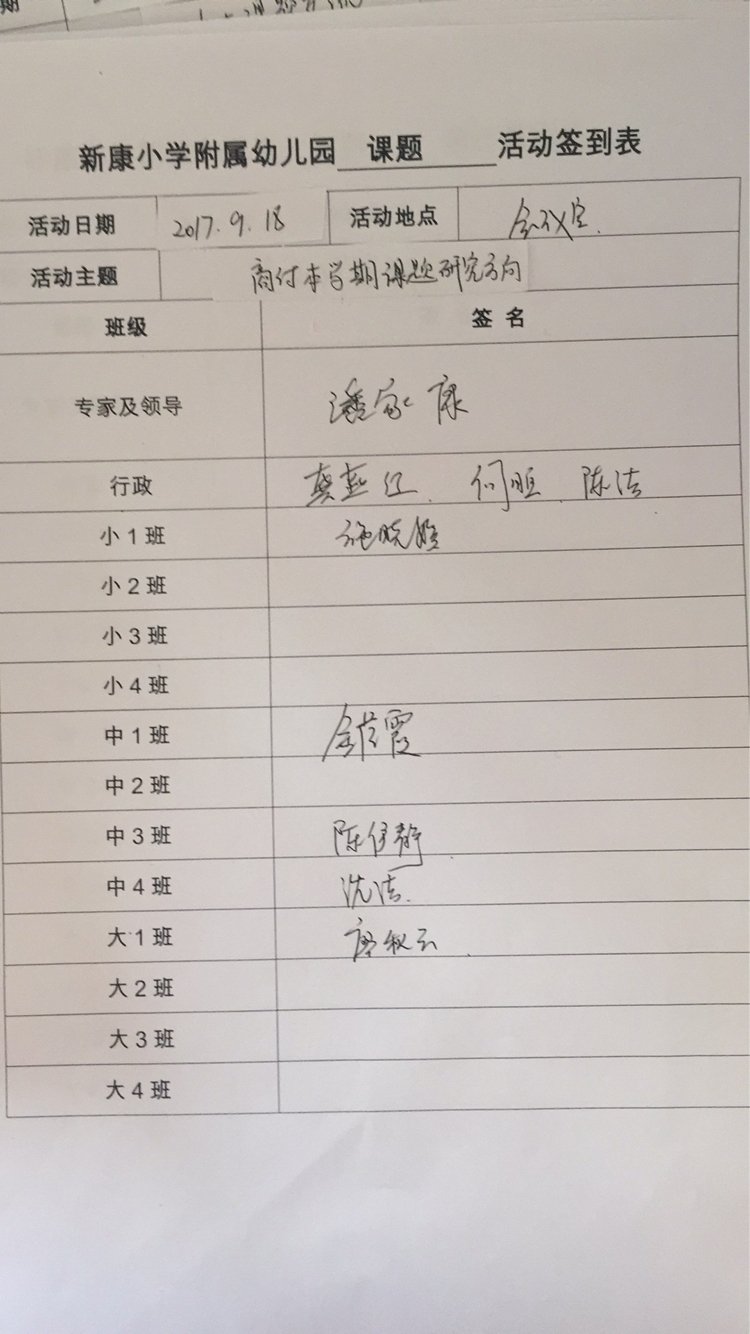 期
新康小学附属幼儿园 课题 活动签到表
活动日期 2017.9.18 活动地点 会议室.
活动主题 商付本学期课题研究方向
班级 签名
专家及领导 潘家康
行政 龚燕红. 何旦. 陈洁
小1班 施晓
小2班
小3班
小4班
中1班 金 霞
中2班
中3班 陈 静
中4班 沈洁.
大1班 唐秋云.
大2班
大3班
大4班